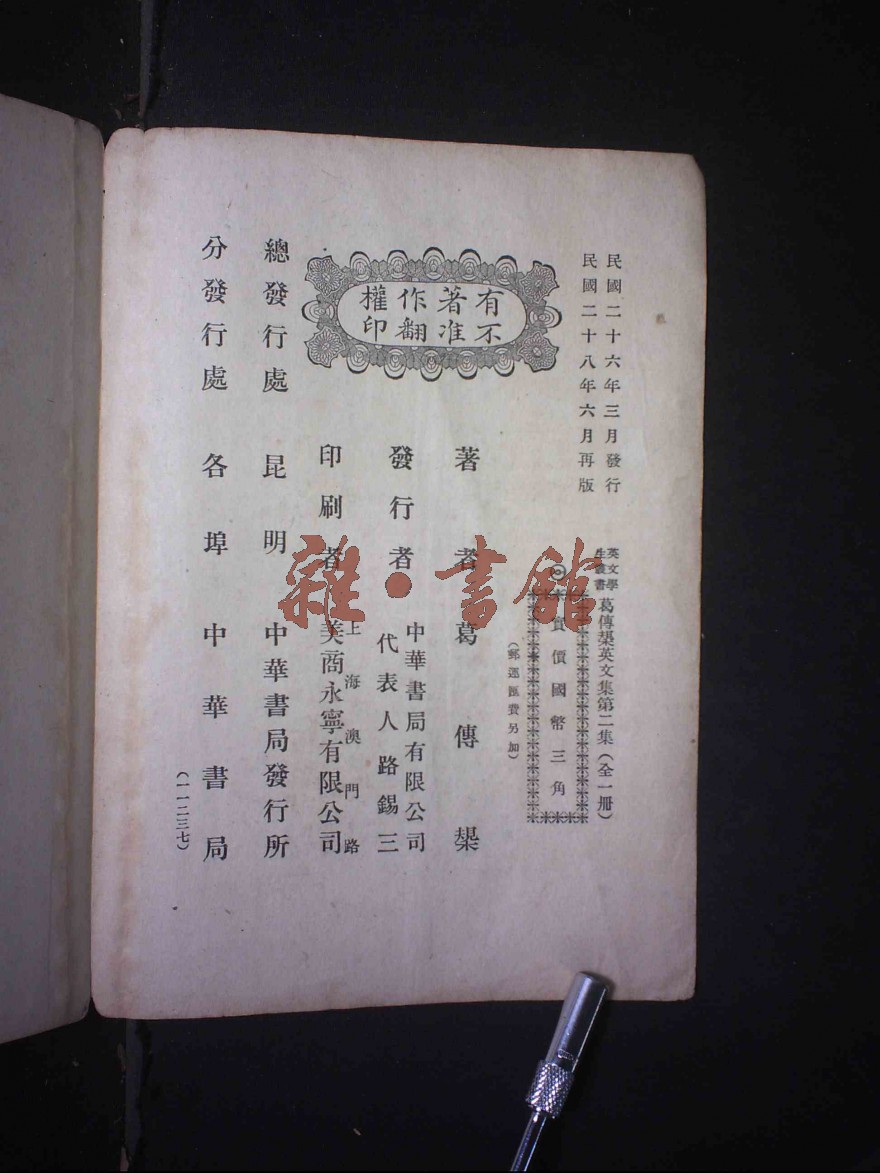 民國二十六年三月發行
民國二十八年六月再版
英文學生叢書
葛傳槼英文集第二集(全一册)
實價國幣三角
(郵運匯費另加)
有著作權
不准翻印
著者 葛傳槼
發行者 中華書局有限公司
代表人路錫三
印刷者 上海澳門路
美商永寧有限公司
總發行處 昆明 中華書局發行所
分發行處 各埠 中華書局
(一一二三七)
雜·書館